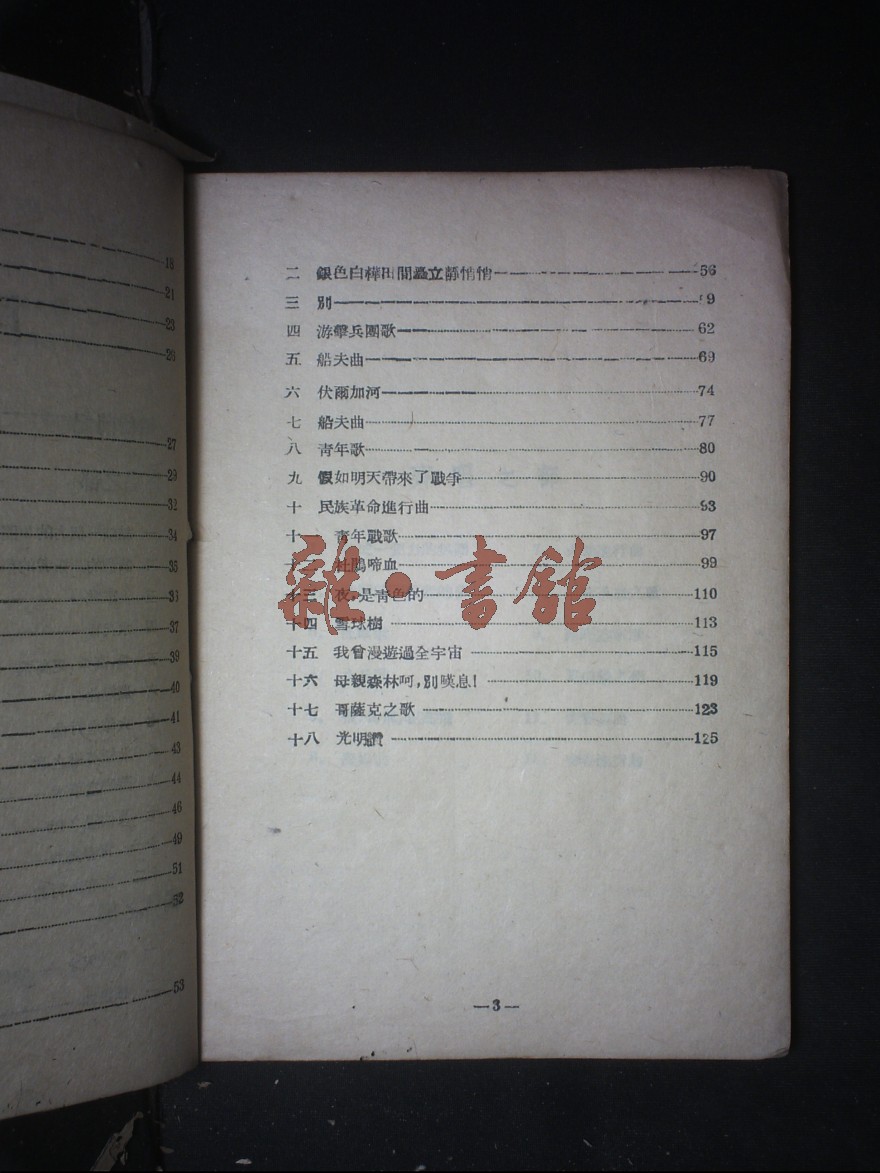 18
21
23
26
27
29
32
34
35
37
39
40
41
43
44
46
49
51
52
53
二 銀色白樺田間矗立靜悄悄 56
三 別 9
四 游擊兵團歌 62
五 船夫曲 69
六 伏爾加河 74
七 船夫曲 77
八 靑年歌 80
九 假如明天帶來了戰爭 90
十 民族革命進行曲 93
十一 靑年戰歌 97
十二 杜鵑啼血 99
十三 夜,是靑色的 110
十四 雪球樹 113
十五 我曾漫遊過全宇宙 115
十六 母親森林呵,別嘆息! 119
十七 哥薩克之歌 123
十八 光明讚 125
雜·書館
—3—